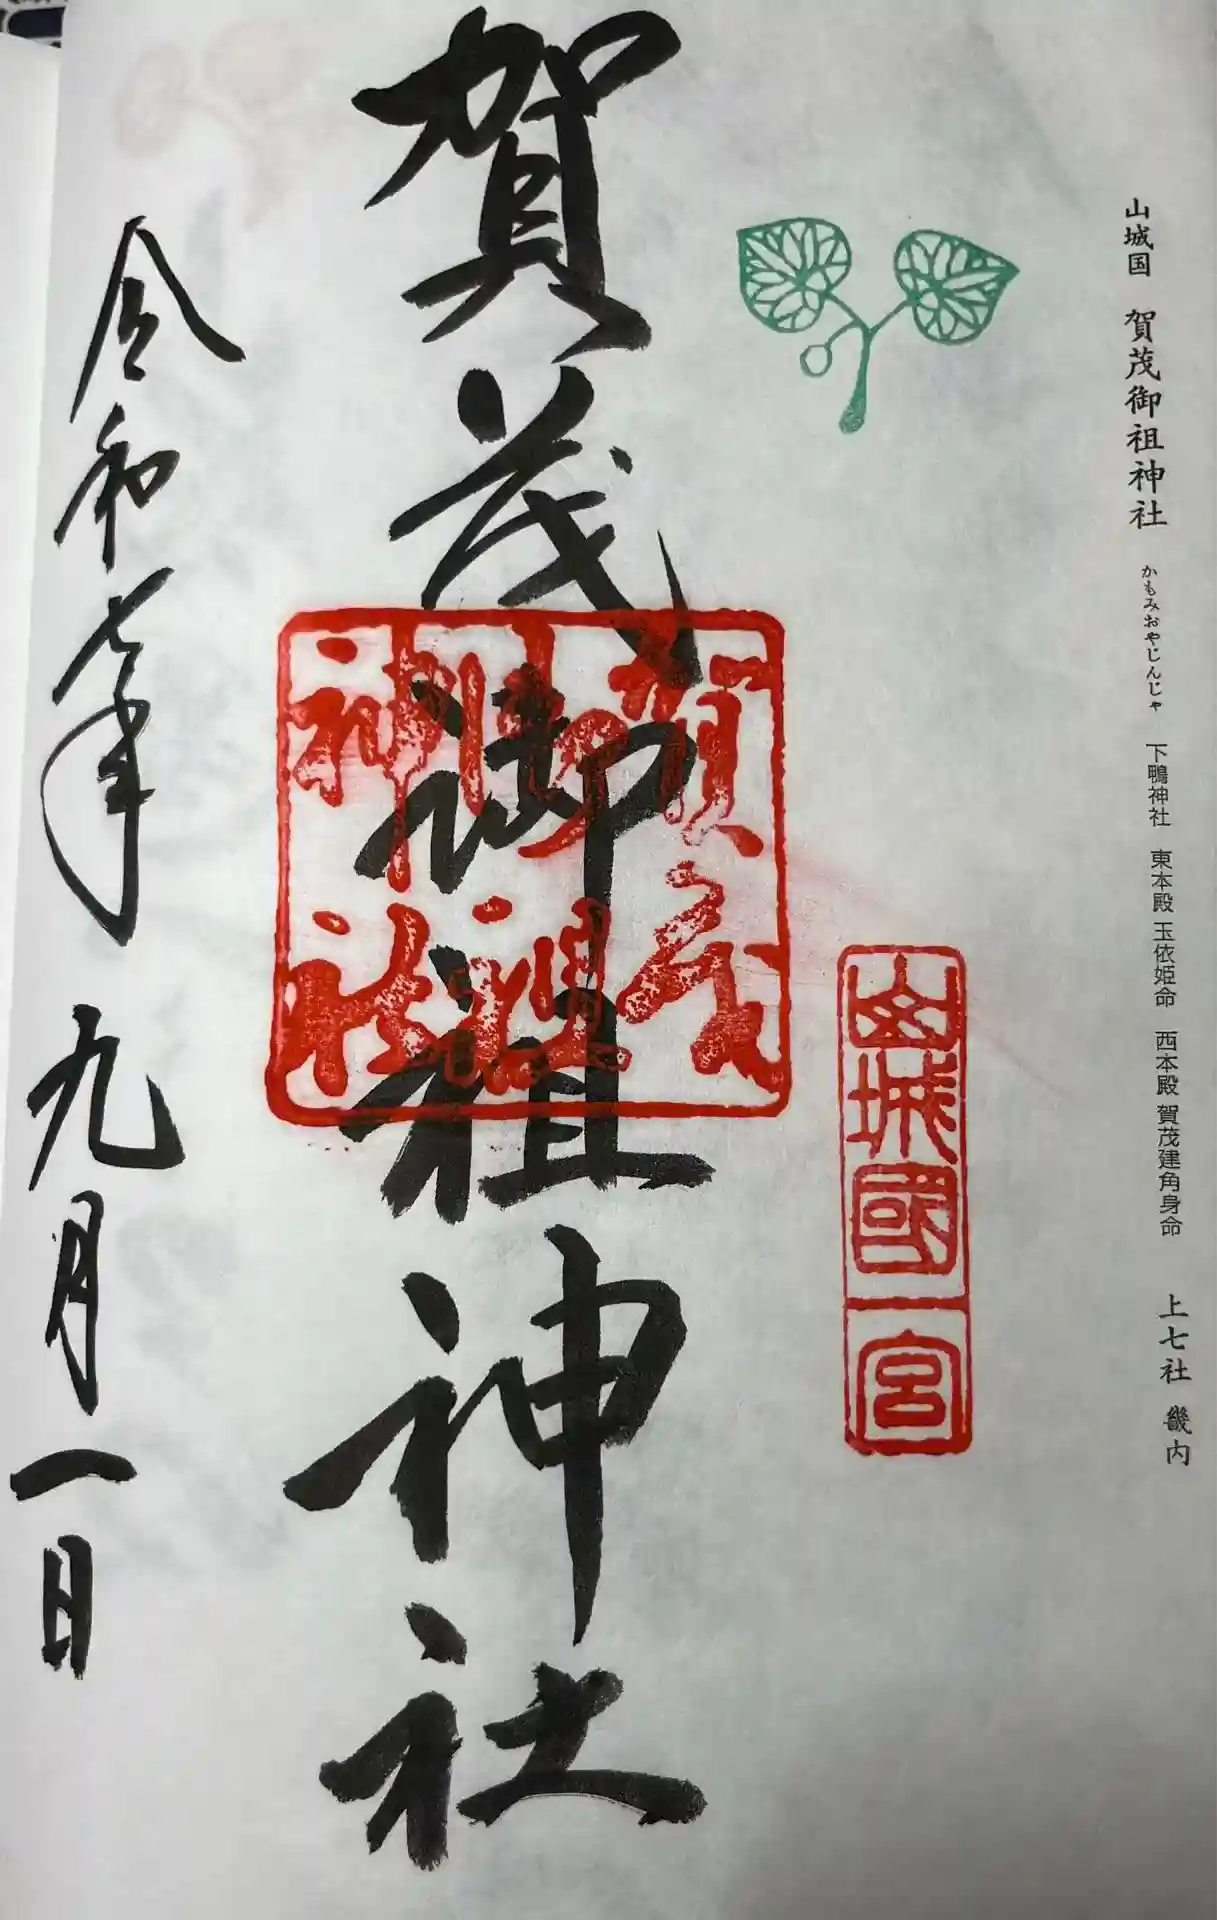 山城国 賀茂御祖神社 かもみおやじんじゃ 下鴨神社 東本殿 玉依姫命 西本殿 賀茂建角身命 上七社 畿内
山城國一宮
賀茂御祖神社
賀茂
御祖
神社
令和七年 九月一日